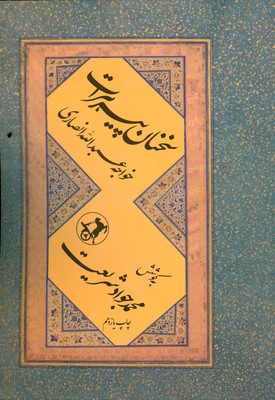 سخنان پیر هرات
خواجه عبدالله انصاری
بکوشش
محمد جواد شریعت
چاپ یازدهم